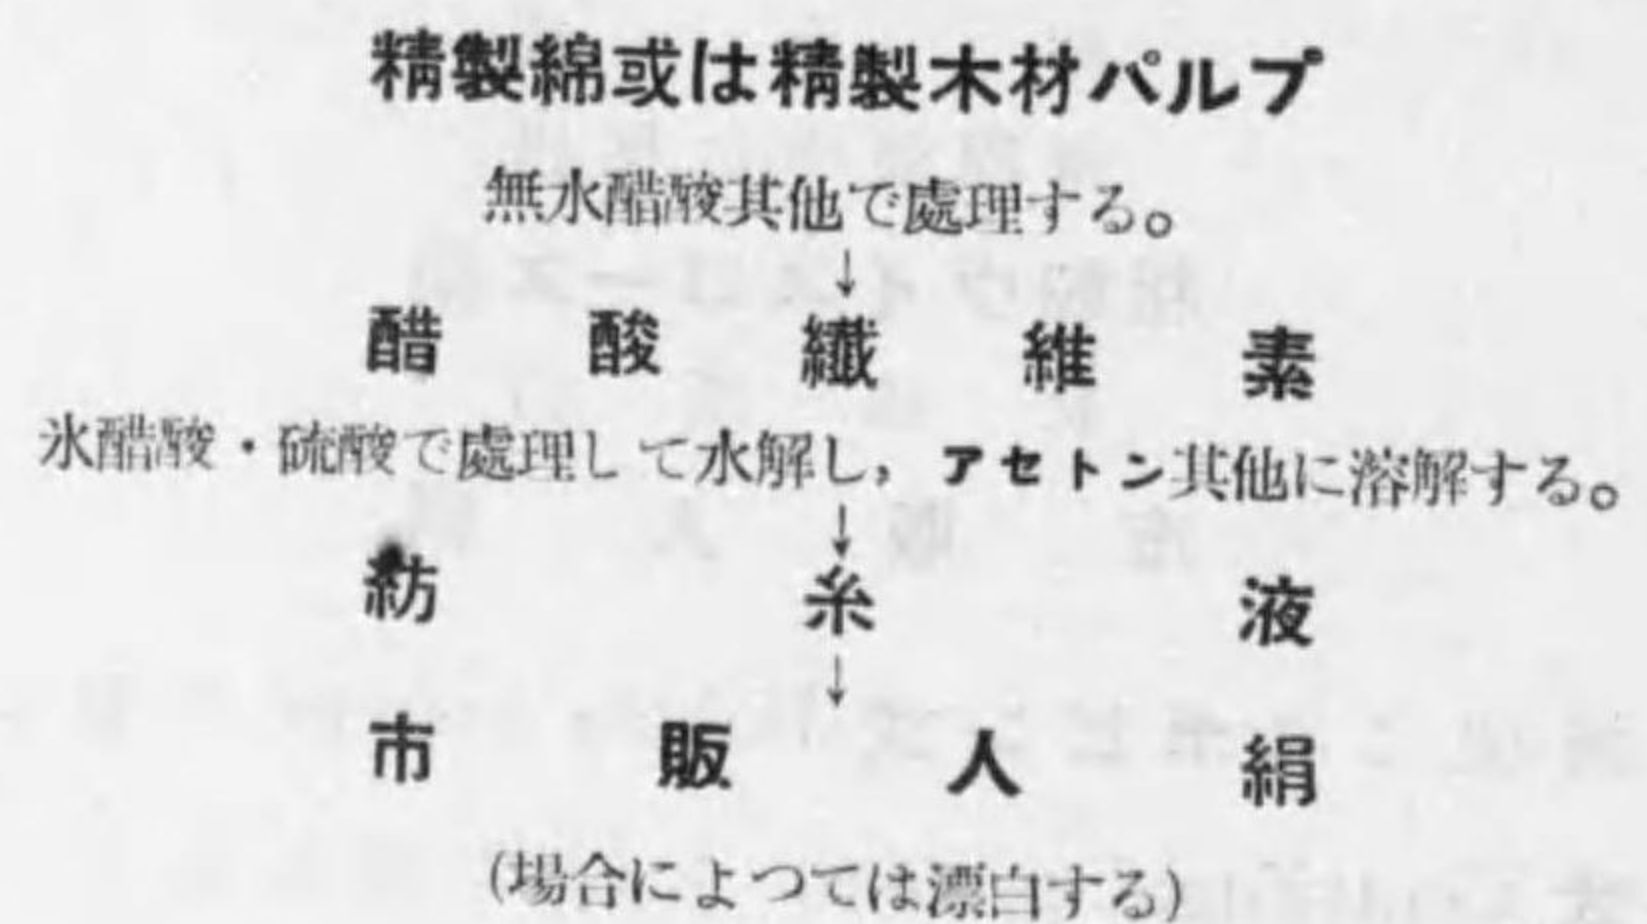 精製綿或は精製木材パルプ
無水醋酸其他で處理する。
↓
醋酸纖維素
氷醋酸・硫酸で處理して水解し，アセトン其他に溶解する。
↓
紡糸液
↓
市販人絹
(場合によつては漂白する)